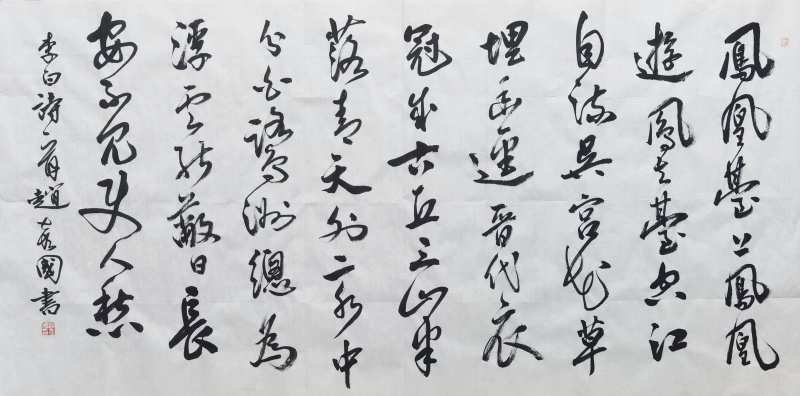 鳳凰臺上鳳凰
遊鳳去臺空江
自流吳宮花草
埋幽逕晉代衣
冠成古丘三山半
落青天外二水中
分白鷺洲總為
浮雲能蔽日長
安不見使人愁
李白詩一首趙國書